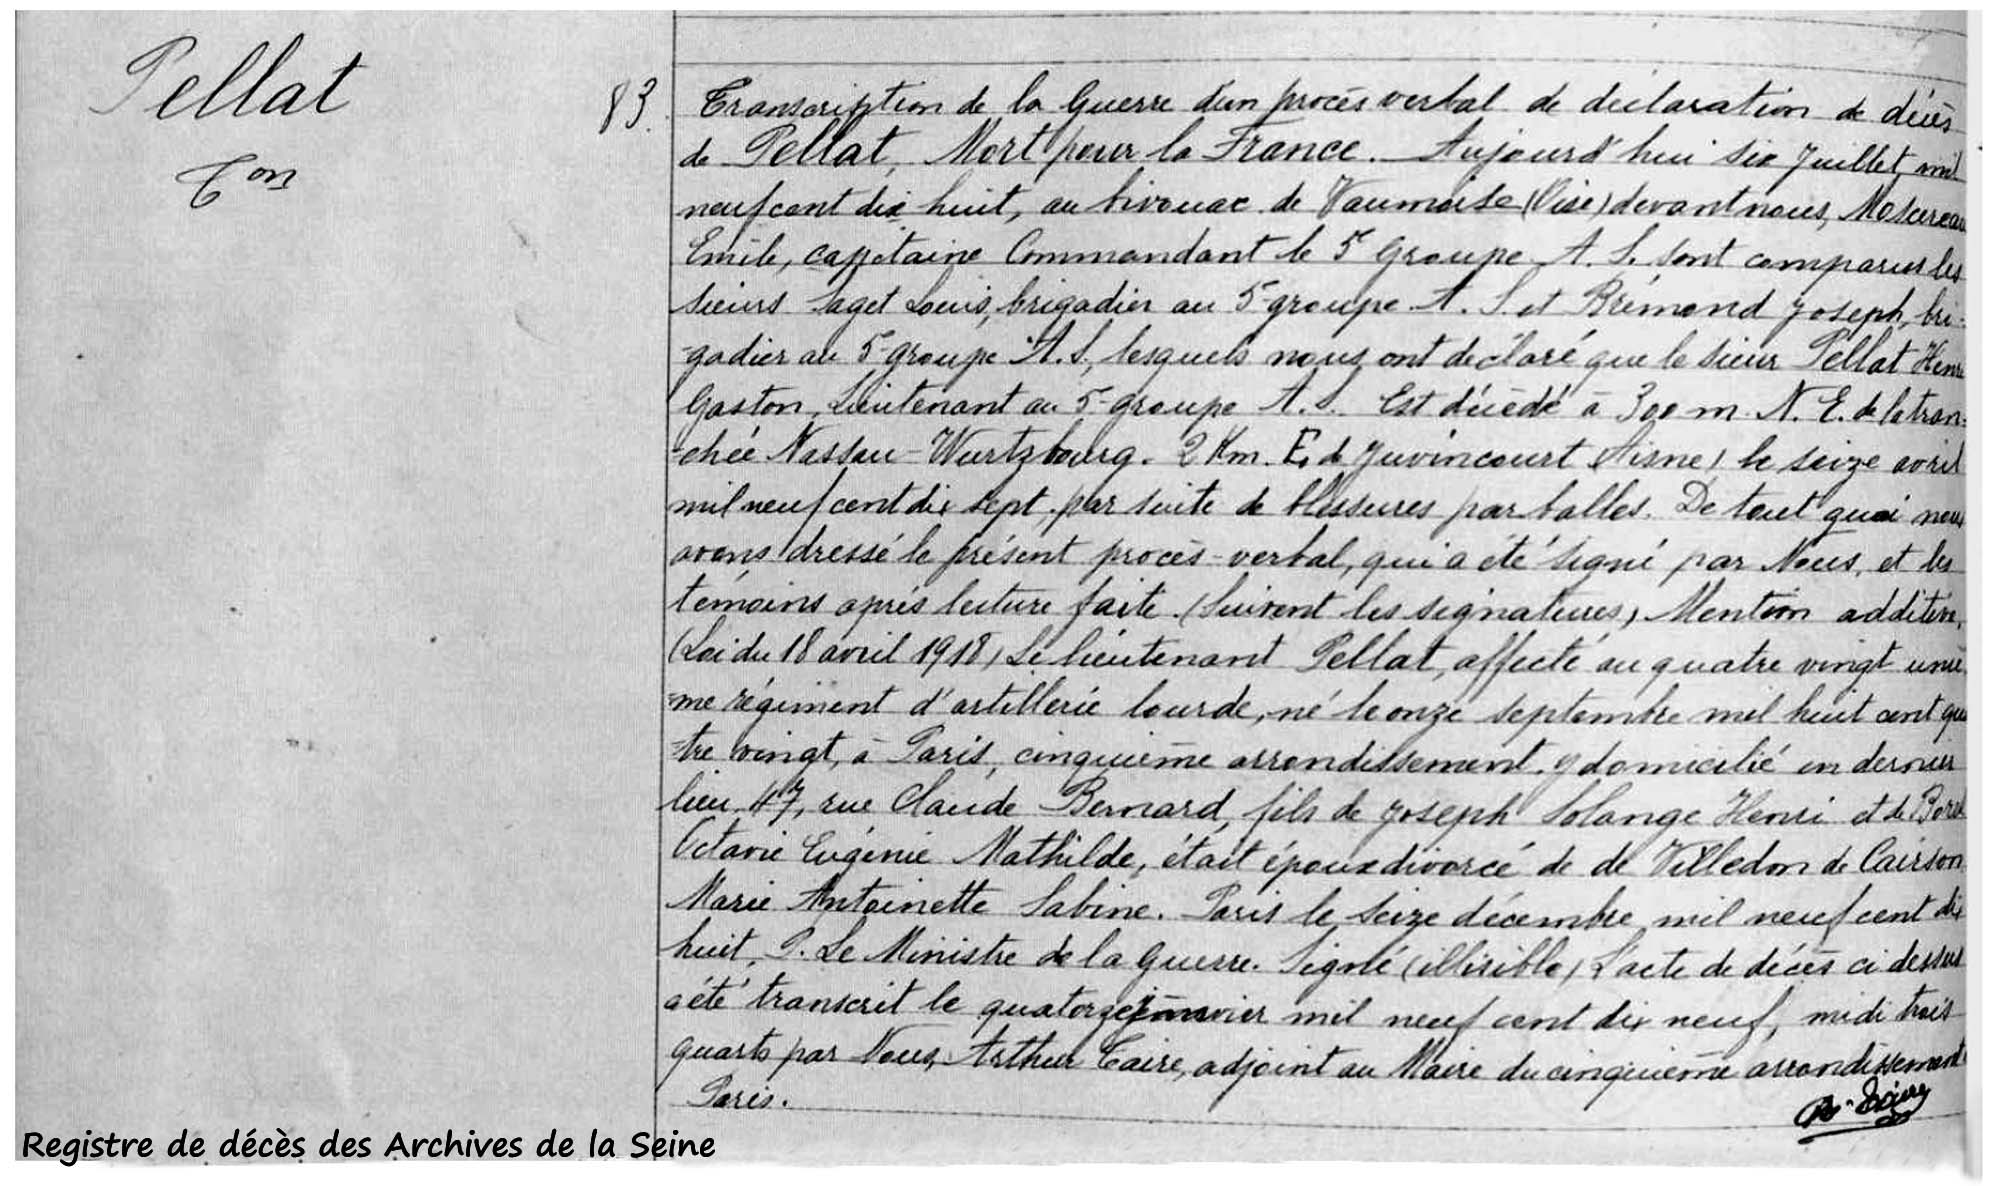 Pellat
Ton
83.
Transcription de la Guerre d'un procès verbal de déclaration de décès
de Pellat, Mort pour la France. Aujourd'hui six Juillet mil
neuf cent dix huit, au bivouac de Vaumoise (Oise) devant nous,
Emile, capitaine Commandant le 5e Groupe A. S. sont comparus les
sieurs Saget Louis, brigadier au 5e groupe A. S. et Brémond Joseph, bri-
-gadier au 5e groupe A. S., lesquels nous ont déclaré que le sieur Pellat Henri
Gaston, Lieutenant au 5e groupe A. S. Est décédé à 300 m. N. E. de la tran-
-chée Nassau-Wurtzbourg. 2 Km. E. de Juvincourt (Aisne) le seize avril
mil neuf cent dix sept, par suite de blessures par balles. De tout quoi nous
avons dressé le présent procès-verbal, qui a été signé par Nous, et les
témoins après lecture faite. (Suivent les signatures) Mention additive,
(Loi du 18 avril 1918) Le lieutenant Pellat, affecté au quatre vingt uniè-
-me régiment d'artillerie lourde, né le onze septembre mil huit cent qua
-tre vingt, à Paris, cinquième arrondissement, y domicilié en dernier
lieu, 47, rue Claude Bernard, fils de Joseph Solange Henri et de
Octavie Eugénie Mathilde, était époux divorcé de de Villedon de Cairson
Marie Antoinette Sabine. Paris le seize décembre mil neuf cent dix
huit, P. Le Ministre de la Guerre. Signé (illisible) L'acte de décès ci dessus
a été transcrit le quatorze janvier mil neuf cent dix neuf, midi trois
quarts par Nous, Arthur Caire, adjoint au Maire du cinquième arrondissement
Paris.
Registre de décès des Archives de la Seine